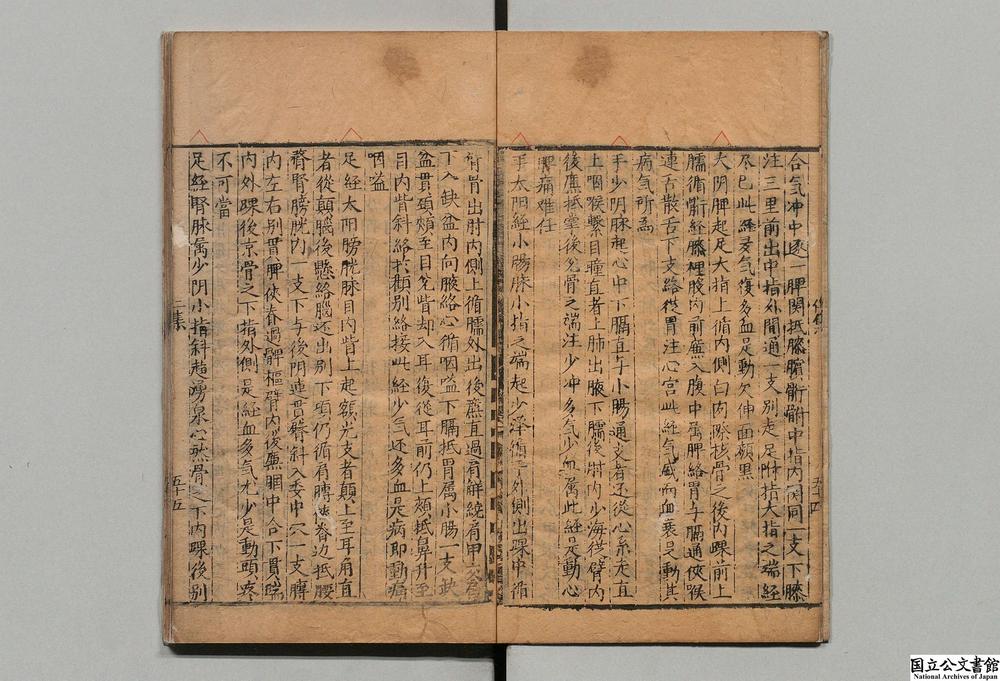 合气冲中逐一髀関抵膝臏䯒䯒中指内閒同一支下膝
注三里前出中指外間通一支別走足跗指大指之端経
尽已此経多气復多血是動欠伸面顔黒
太阴脾起足大指上循内側白肉際核骨之後内踝前上
臑循䯒経膝裡股内前亷入腹中属脾絡胃与膈通侠喉
連舌散舌下支絡従胃注心宫此経气盛而血衰是動其
病气所為
手少阴脉起心中下膈直与小腸通支者还従心系走直
上咽喉繋目瞳直者上肺出腋下臑後肘内少海従臂内
後亷抵掌後兊骨之端注少冲多气少血属此経是動心
脾痛难任
手太阳経小腸脉小指之端起少泽循手外側出踝中循
臂骨出肘内側上循臑外出後亷直過肩觧繞肩甲
下入缺盆内向腋絡心循咽嗌下膈抵胃属小腸一支缺
盆貫頚頰至目兊眥却入耳復従耳前仍上頰抵鼻升至
目内眥斜絡於顴別絡接此経少气还多血是病即動痛
咽嗌
足経太阳膀胱脉目内眥上起額尖支者顛上至耳角直
者従顛脳後懸絡脳还出別下項仍循肩膊侠脊辺抵腰
膂腎膀胱内一支下与後阴連貫臀斜入委中穴一支膊
内左右別貫胛侠脊過髀樞臂内後亷膕中合下貫腨
内外踝後京骨之下指外側是経血多气尤少是動頭疼
不可當
足経腎脉属少阴小指斜趨湧泉心然骨之下内踝後別
二集
五十五
五十四
国立公文書館
National Archives of Japan